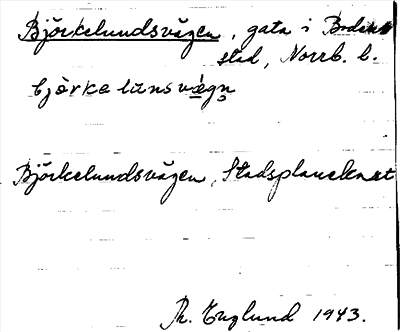 Björkelundsvägen, gata i Bodens
stad, Norrb. l.
bjòrkelünsvæ̀gn̥
Björkelundsvägen, Stadsplanekart
Th. Englund 1943.